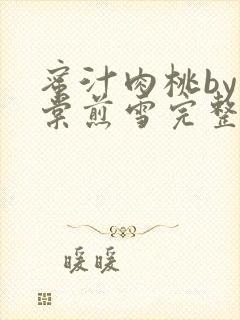 蜜汁肉桃by
棠煎雪完整
暖暖